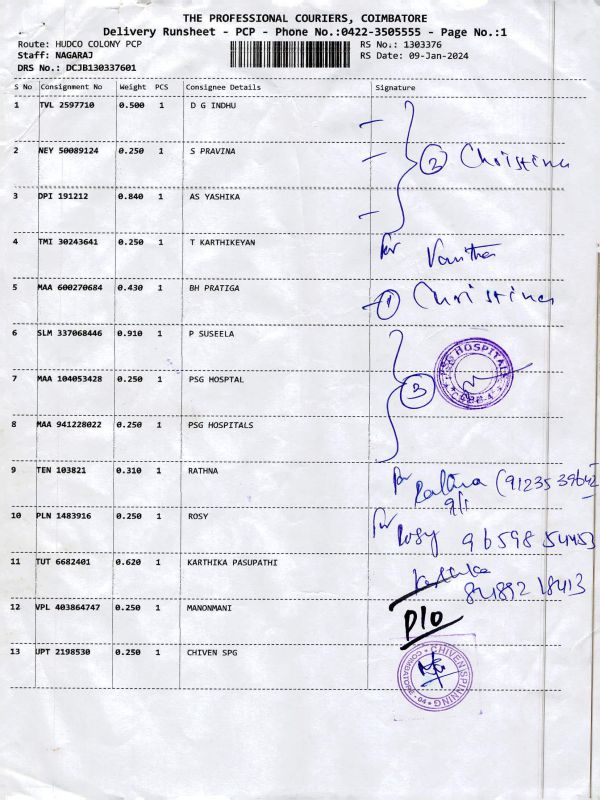 THE PROFESSIONAL COURIERS, COIMBATORE
Delivery Runsheet - PCP - Phone No.:0422-3505555 - Page No.:1
Route: HUDCO COLONY PCP
Staff: NAGARAJ
DRS No.: DCJB130337601
RS No.: 1303376
RS Date: 09-Jan-2024
S No Consignment No Weight PCS Consignee Details Signature
1 TVL 2597710 0.500 1 D G INDHU
2 NEY 50089124 0.250 1 S PRAVINA
2 Christina
3 DPI 191212 0.840 1 AS YASHIKA
4 TMI 30243641 0.250 1 T KARTHIKEYAN
for Vanitha
5 MAA 600270684 0.430 1 BH PRATIGA
1 Christina
6 SLM 337068446 0.910 1 P SUSEELA
PSG HOSPITALS
7 MAA 104053428 0.250 1 PSG HOSPTAL
3
8 MAA 941228022 0.250 1 PSG HOSPITALS
9 TEN 103821 0.310 1 RATHNA
for Rathna (91235 39642
9/1
10 PLN 1483916 0.250 1 ROSY
for Rosy 96598 54453
11 TUT 6682401 0.620 1 KARTHIKA PASUPATHI
84892 18413
12 VPL 403864747 0.250 1 MANONMANI
D/o
13 UPT 2198530 0.250 1 CHIVEN SPG
CHIVEN SPINNING
COIMBATORE - 04